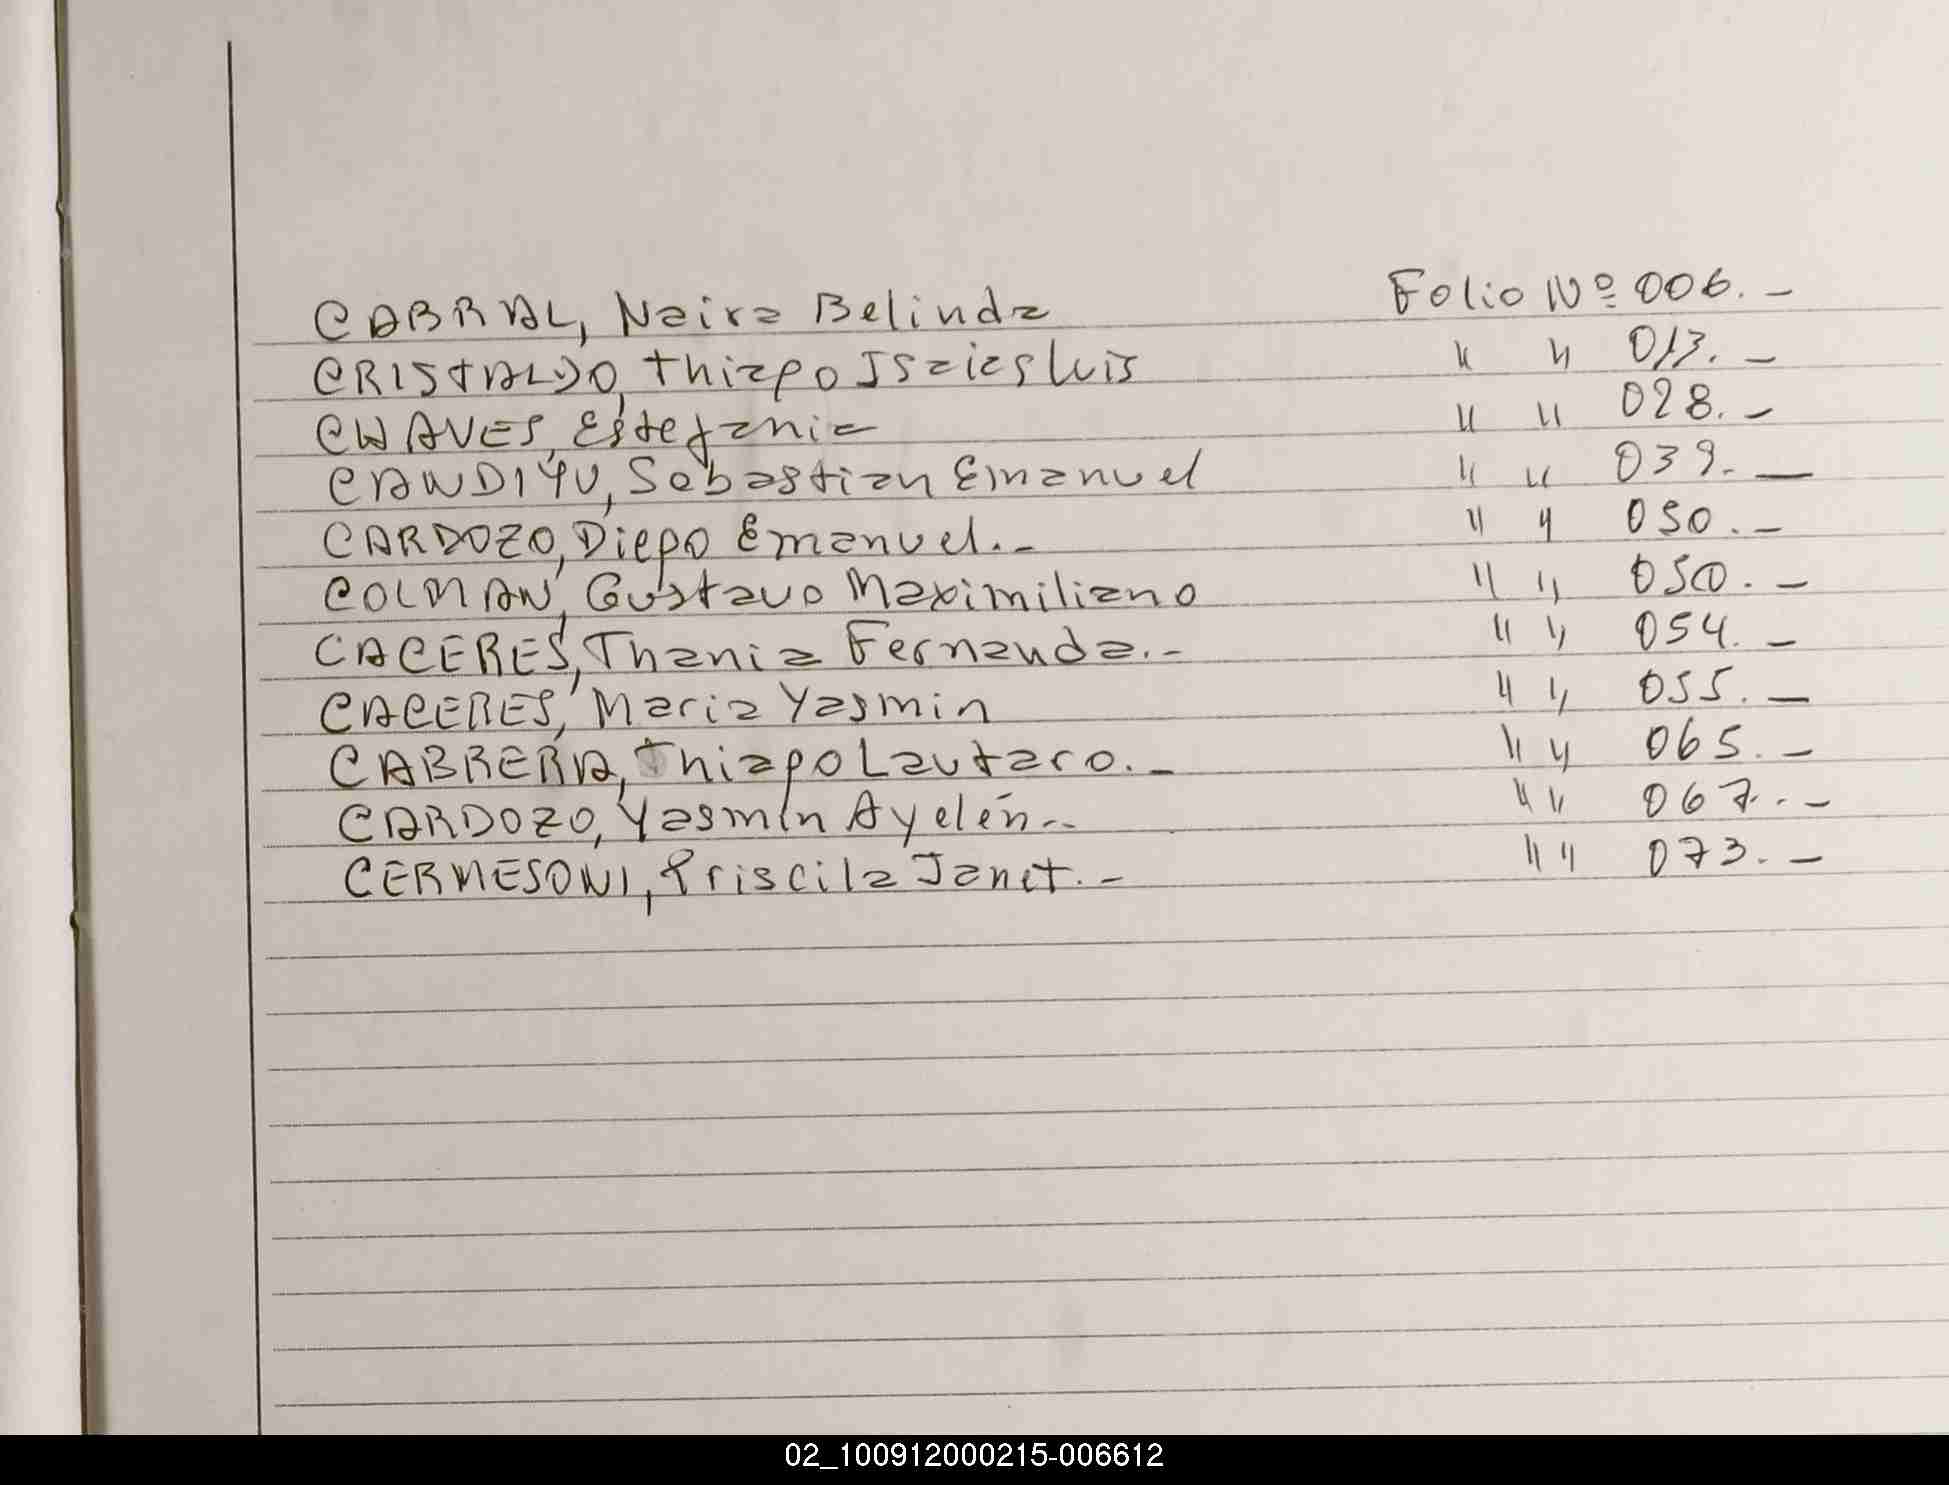 CABRAL, Naira Belinda Folio Nº 006. -
CRISTALDO, Thiago Isaias Luis " " 013. -
CHAVES, Estefania " " 028. -
CANDIYU, Sebastian Emanuel " " 039. -
CARDOZO, Diego Emanuel. - " " 050. -
COLMAN, Gustavo Maximiliano " " 050. -
CACERES, Thania Fernanda. - " " 054. -
CACERES, Maria Yasmin " " 055. -
CABRERA, Thiago Lautaro. - " " 065. -
CARDOZO, Yasmin Ayelén. - " " 067. -
CERMESONI, Priscila Janet. - " " 073. -
02_100912000215-006612